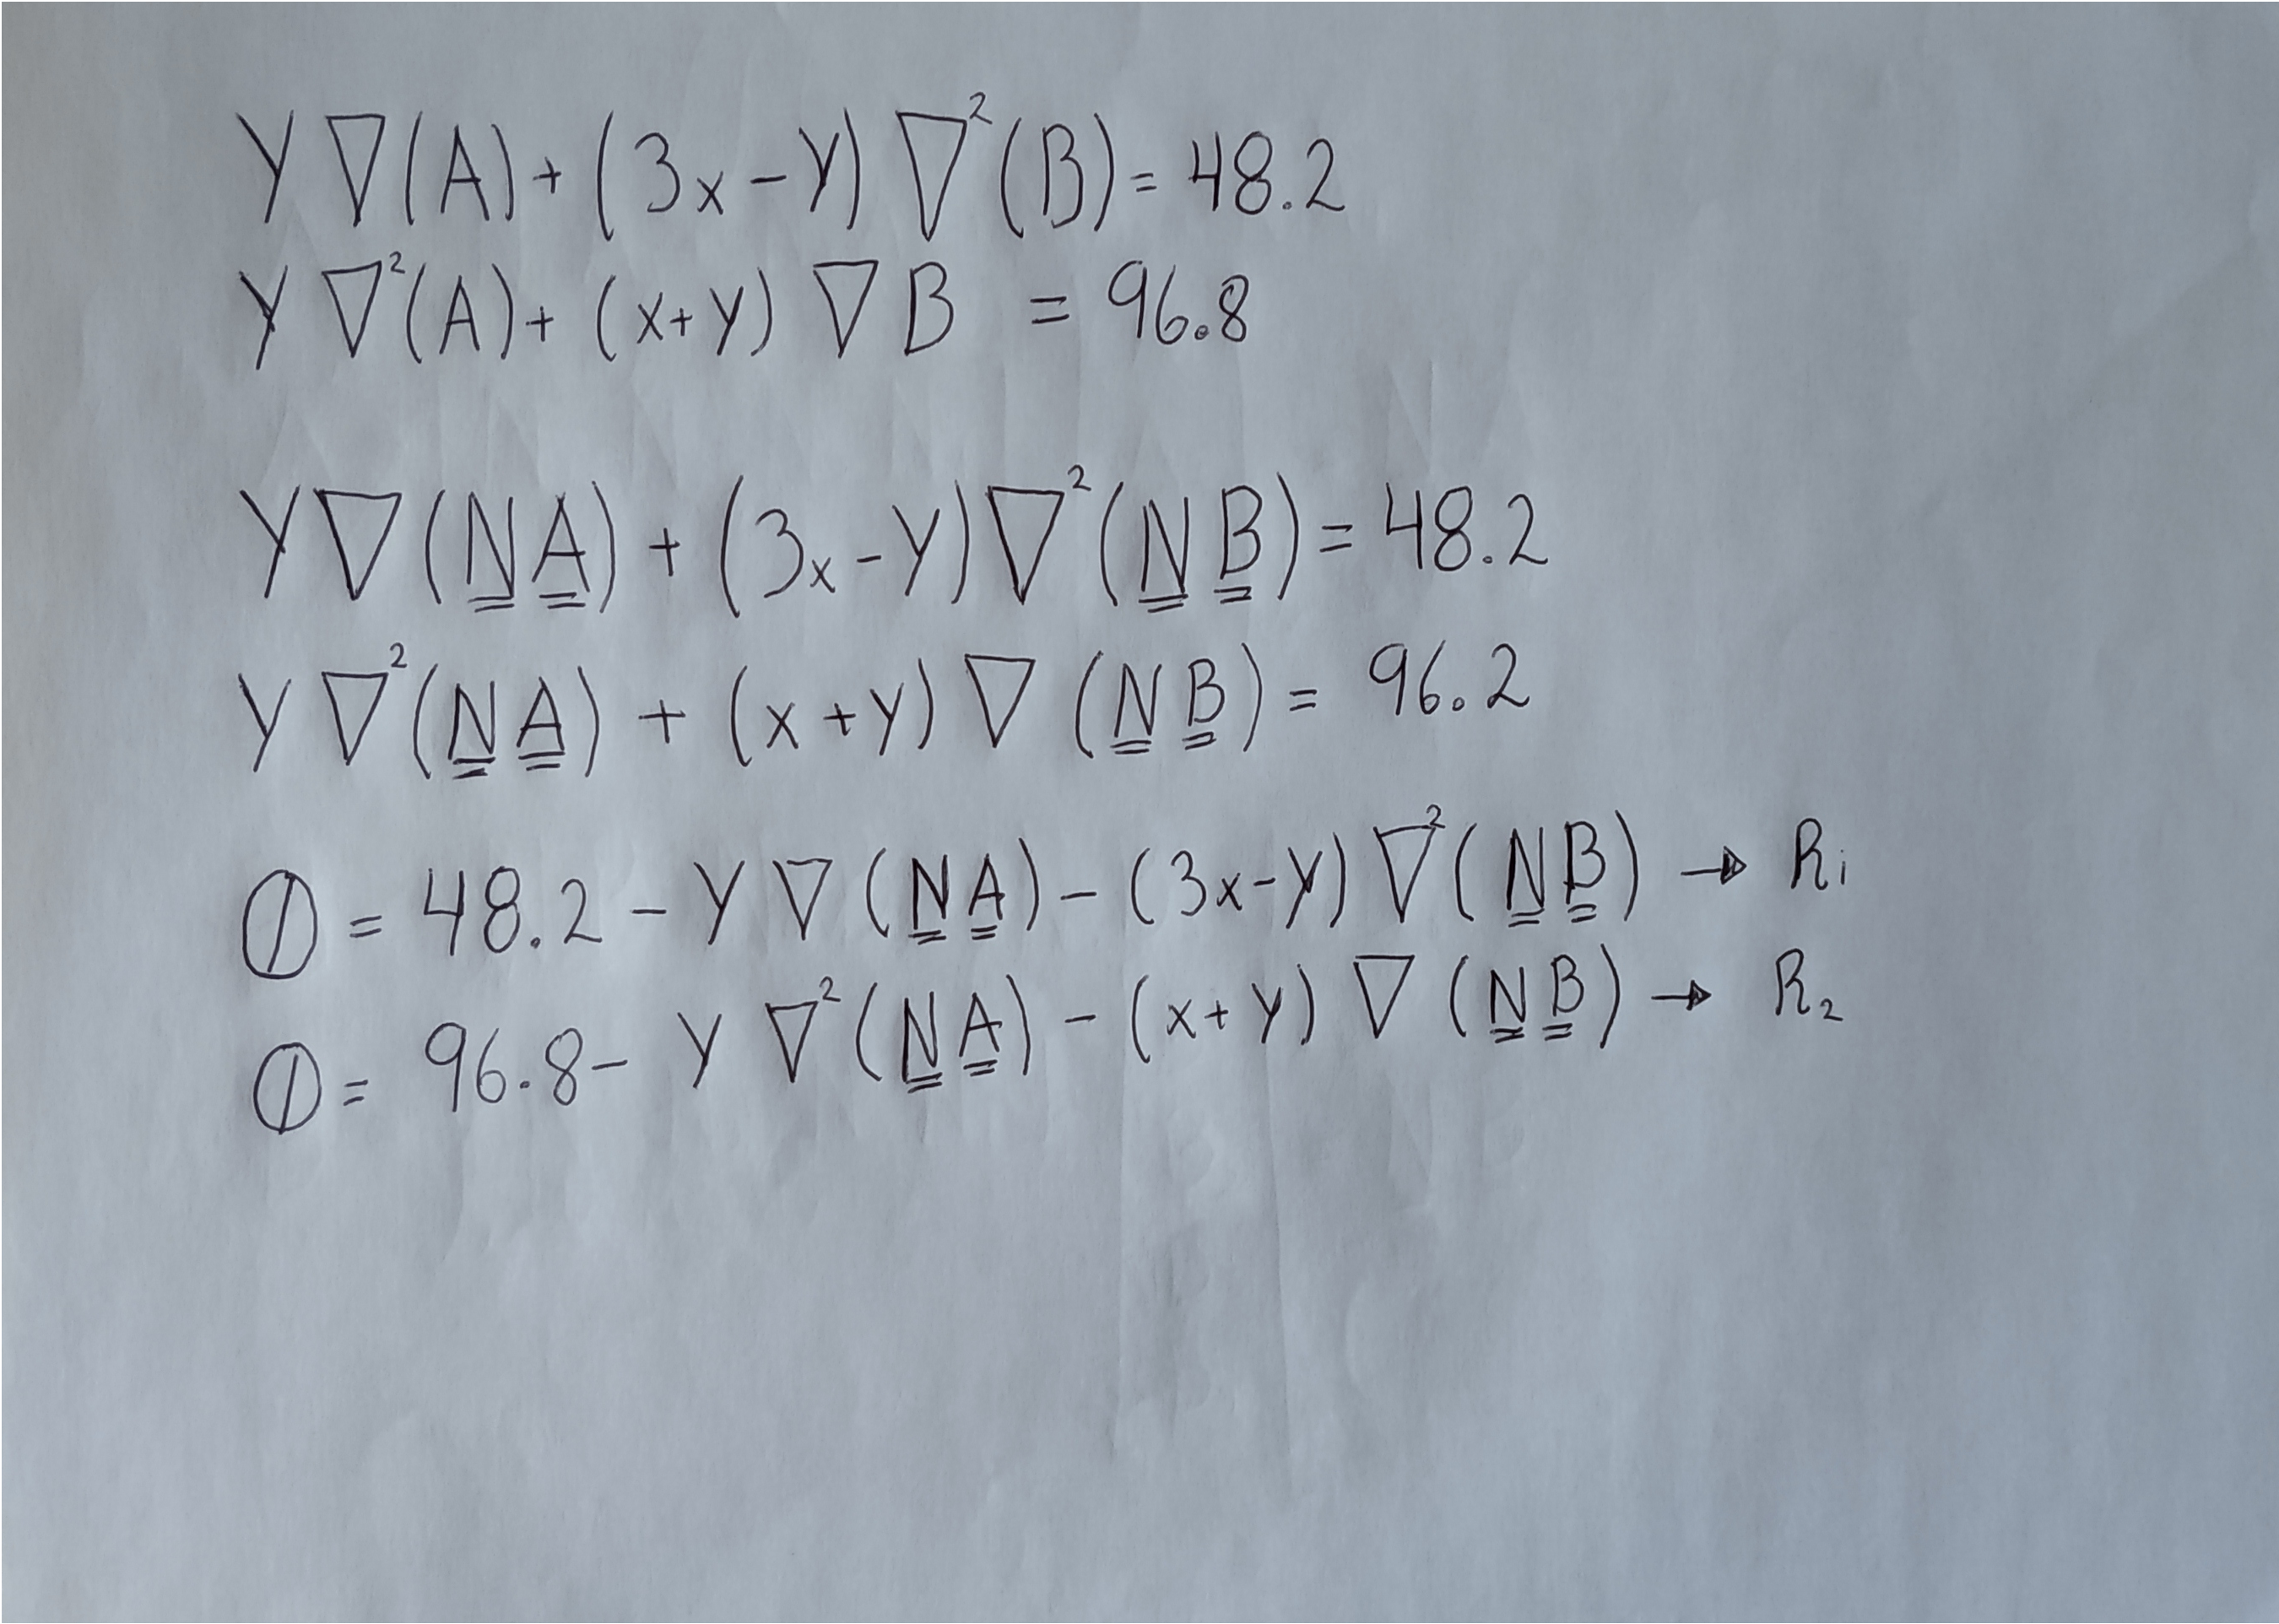 Y ∇(A) + (3x - Y) ∇²(B) = 48.2
Y ∇²(A) + (x + Y) ∇ B = 96.8
Y ∇(N̳ A̳) + (3x - Y) ∇²(N̳ B̳) = 48.2
Y ∇²(N̳ A̳) + (x + y) ∇ (N̳ B̳) = 96.2
0 = 48.2 - Y ∇ (N̳ A̳) - (3x - Y) ∇²(N̳ B̳) → R₁
0 = 96.8 - Y ∇²(N̳ A̳) - (x + Y) ∇ (N̳ B̳) → R₂